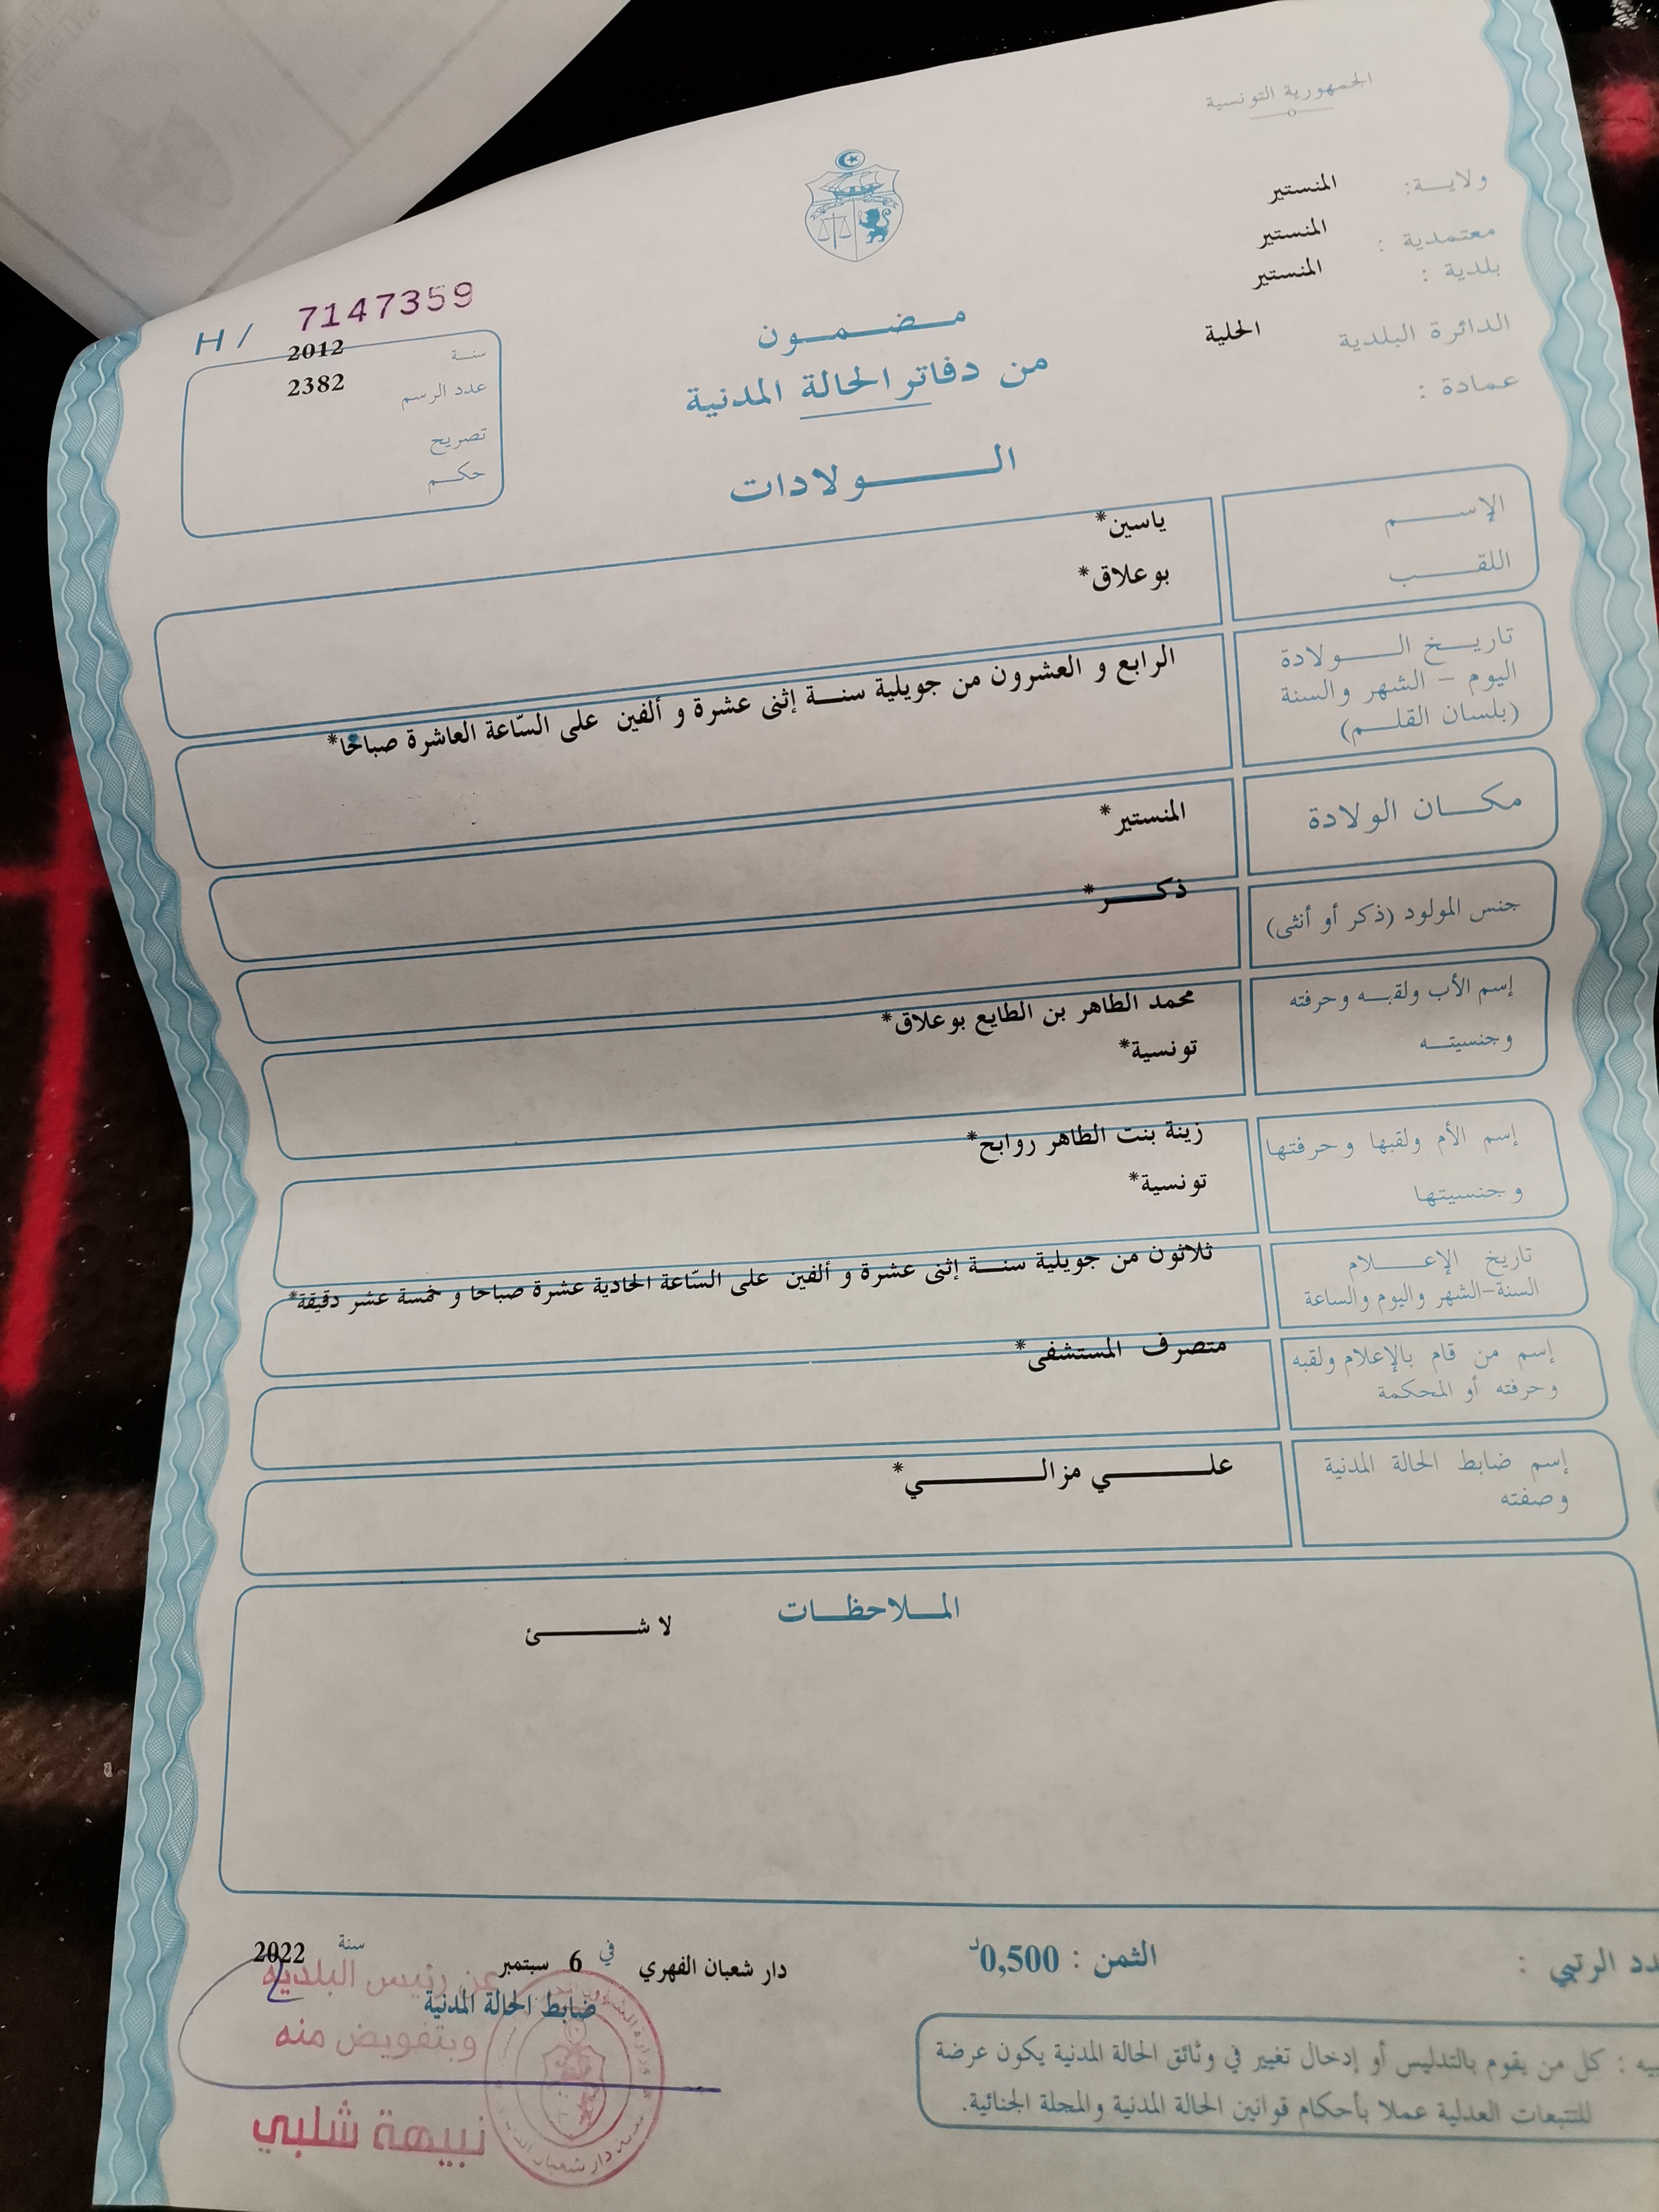 الجمهورية التونسية
ولايـــة: المنستير
معتمدية : المنستير
بلدية : المنستير
الدائرة البلدية الحلية
عمادة :
مـضـمـون
من دفاتر الحالة المدنية
الـــولادات
H / 7147359
سنة 2012
عدد الرسم 2382
تصريح
حكم
الإســـم ياسين*
اللقـــب بوعلاق*
تاريــخ الــــولادة
اليوم - الشهر والسنة
(بلسان القلــم)
الرابع و العشرون من جويلية سنــة إثنى عشرة و ألفين على السّاعة العاشرة صباحًا*
مكــان الولادة المنستير*
جنس المولود (ذكر أو أنثى) ذكـــر*
إسم الأب ولقبــه وحرفته محمد الطاهر بن الطايع بوعلاق*
وجنسيتــه تونسية*
إسم الأم ولقبها وحرفتها زينة بنت الطاهر روابح*
وجنسيتها تونسية*
تاريخ الإعـــلام
السنة-الشهر واليوم والساعة
ثلاثون من جويلية سنــة إثنى عشرة و ألفين على السّاعة الحادية عشرة صباحا و خمسة عشر دقيقة*
إسم من قام بالإعلام ولقبه
وحرفته أو المحكمة
متصرف المستشفى*
إسم ضابط الحالة المدنية
وصفته
علـــــي مزالـــــي*
المــلاحظــات
لا شـــــئ
دد الرتبي :
الثمن : 0,500د
دار شعبان الفهري في 6 سبتمبر سنة 2022
ضابط الحالة المدنية
عن رئيس البلدية
وبتفويض منه
نبيهة شلبي
بيه : كل من يقوم بالتدليس أو إدخال تغيير في وثائق الحالة المدنية يكون عرضة
للتتبعات العدلية عملا بأحكام قوانين الحالة المدنية والمجلة الجنائية.